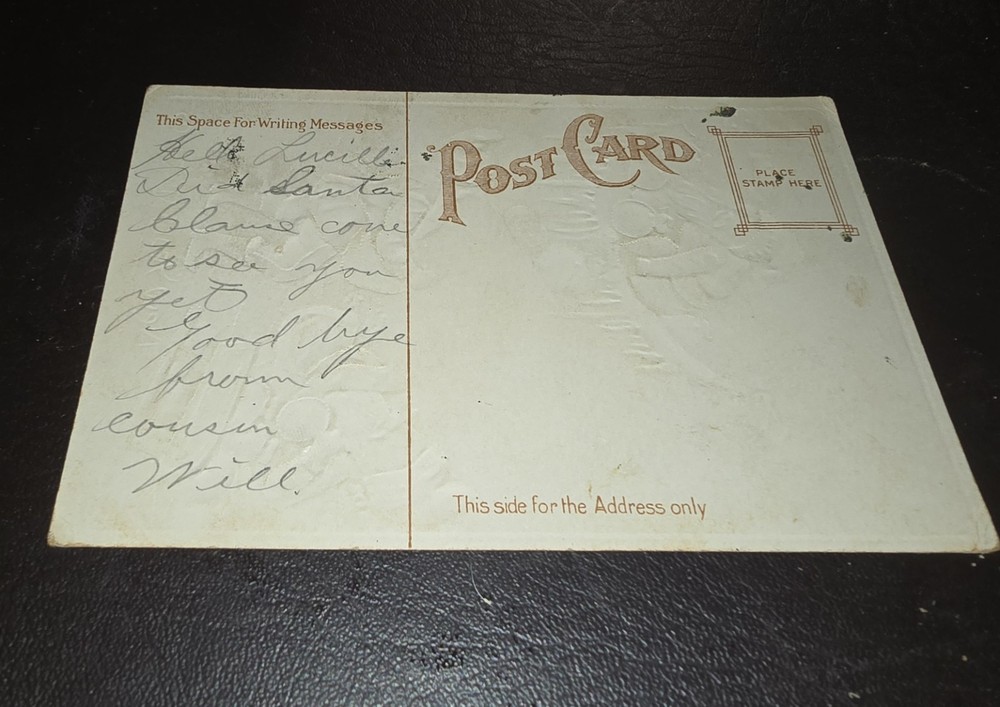 This Space For Writing Messages
Hello Lucille
Did Santa
Clause come
to see you
yet
Good bye
from
cousin
Will.
POST CARD
PLACE
STAMP HERE
This side for the Address only